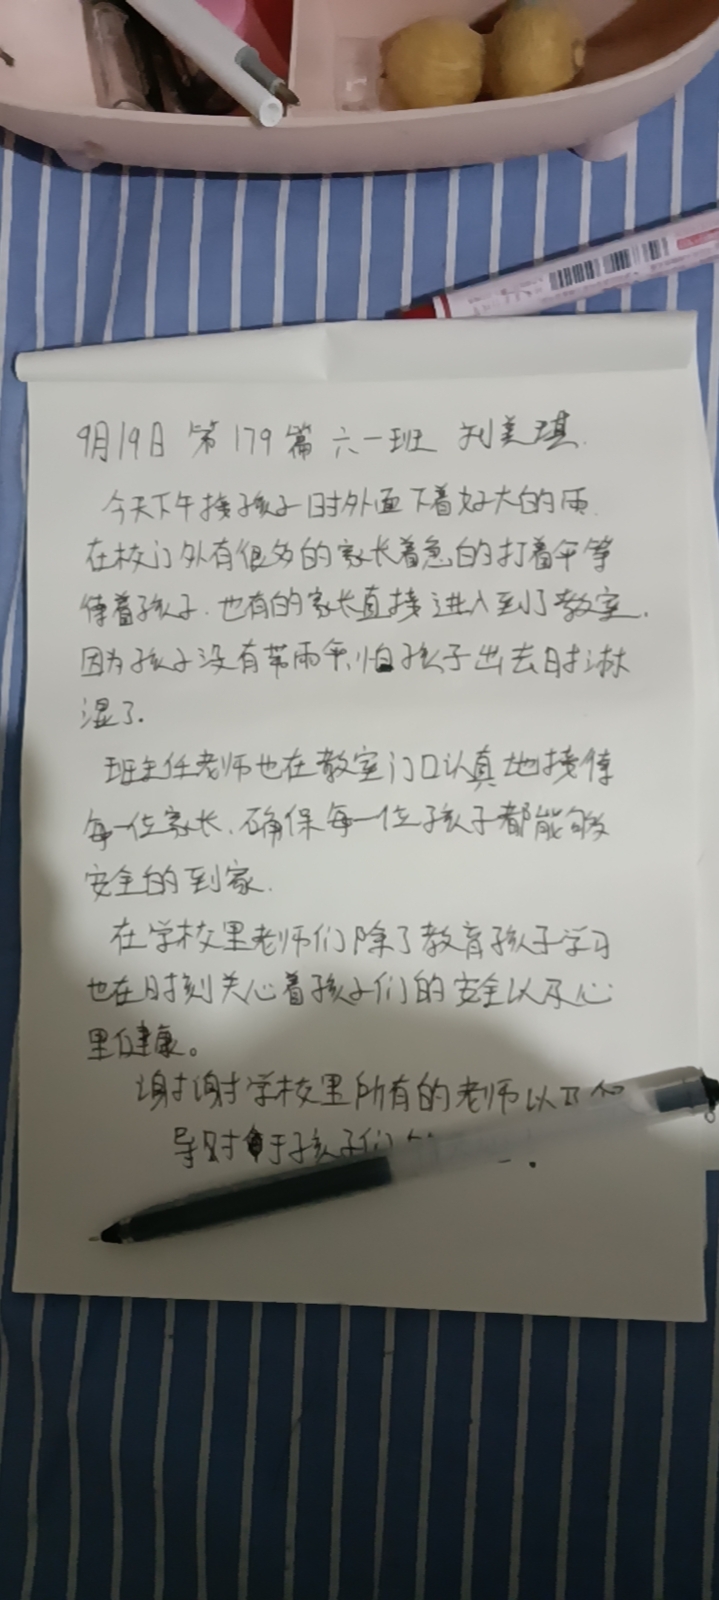 9月19日 第179篇 六一班 刘美琪.
今天下午接孩子时外面下着好大的雨.
在校门外有很多的家长着急的打着伞等
待着孩子.也有的家长直接进入到了教室.
因为孩子没有带雨伞,怕孩子出去时淋
湿了.
班主任老师也在教室门口认真地接待
每一位家长.确保每一位孩子都能够
安全的到家.
在学校里老师们除了教育孩子学习
也在时刻关心着孩子们的安全以及心
里健康。
谢谢学校里所有的老师以及
导对于孩子们